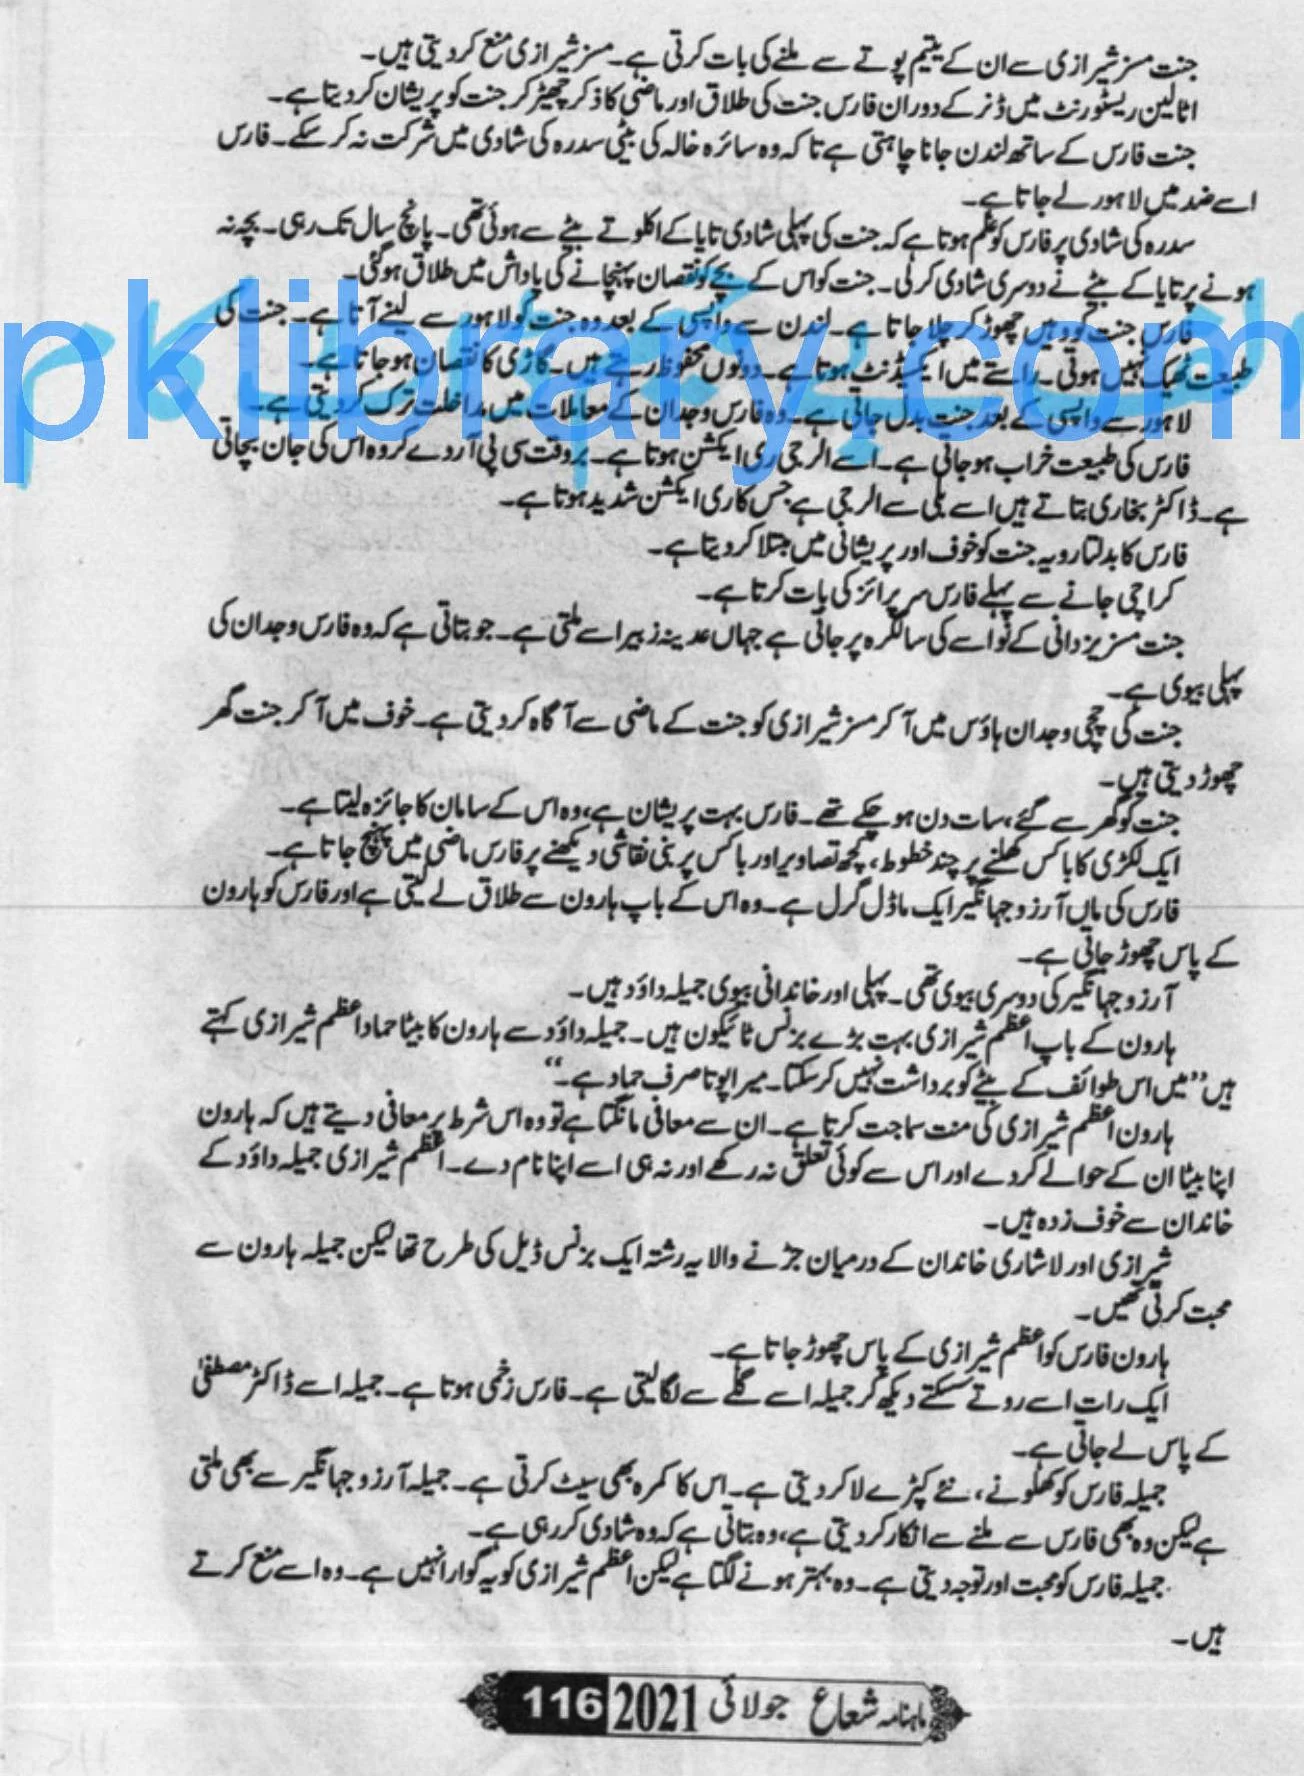 جنت مسز شیرازی سے ان کے یتیم پوتے سے ملنے کی بات کرتی ہے۔ مسز شیرازی منع کردیتی ہیں۔
اٹالین ریسٹورنٹ میں ڈنر کے دوران فارس جنت کی طلاق اور ماضی کا ذکر چھیڑ کر جنت کو پریشان کردیتا ہے۔
جنت فارس کے ساتھ لندن جانا چاہتی ہے تاکہ وہ سائرہ خالہ کی بیٹی سدرہ کی شادی میں شرکت نہ کرسکے۔ فارس
اسے ضد میں لاہور لے جاتا ہے۔
سدرہ کی شادی پر فارس کو علم ہوتا ہے کہ جنت کی پہلی شادی تایا کے اکلوتے بیٹے سے ہوئی تھی۔ پانچ سال تک رہی۔ بچہ نہ
ہونے پر تایا کے بیٹے نے دوسری شادی کرلی۔ جنت کو اس کے بچے کو نقصان پہنچانے کی پاداش میں طلاق ہوگئی۔
فارس جنت کو وہیں چھوڑ کر چلا جاتا ہے۔ لندن سے واپسی کے بعد وہ جنت کو لاہور سے لینے آتا ہے۔ جنت کی
طبیعت ٹھیک نہیں ہوتی۔ راستے میں ایکسیڈنٹ ہوتا ہے۔ دونوں محفوظ رہتے ہیں۔ گاڑی کا نقصان ہوجاتا ہے۔
لاہور سے واپسی کے بعد جنت بدل جاتی ہے۔ وہ فارس وجدان کے معاملات میں مداخلت ترک کردیتی ہے۔
فارس کی طبیعت خراب ہوجاتی ہے۔ اسے الرجی ری ایکشن ہوتا ہے۔ بروقت سی پی آر دے کر وہ اس کی جان بچاتی
ہے۔ ڈاکٹر بخاری بتاتے ہیں اسے بلی سے الرجی ہے جس کا ری ایکشن شدید ہوتا ہے۔
فارس کا بدلتا رویہ جنت کو خوف اور پریشانی میں مبتلا کردیتا ہے۔
کراچی جانے سے پہلے فارس سرپرائز کی بات کرتا ہے۔
جنت مسز یزدانی کے نواسے کی سالگرہ پر جاتی ہے جہاں عدینہ زبیر اسے ملتی ہے۔ جو بتاتی ہے کہ وہ فارس وجدان کی
پہلی بیوی ہے۔
جنت کی چچی وجدان ہاؤس میں آکر مسز شیرازی کو جنت کے ماضی سے آگاہ کردیتی ہے۔ خوف میں آکر جنت گھر
چھوڑ دیتی ہیں۔
جنت کو گھر سے گئے، سات دن ہوچکے تھے۔ فارس بہت پریشان ہے، وہ اس کے سامان کا جائزہ لیتا ہے۔
ایک لکڑی کا باکس کھلنے پر چند خطوط، کچھ تصاویر اور باکس پر بنی نقاشی دیکھنے پر فارس ماضی میں پہنچ جاتا ہے۔
فارس کی ماں آرزو جہانگیر ایک ماڈل گرل ہے۔ وہ اس کے باپ ہارون سے طلاق لے لیتی ہے اور فارس کو ہارون
کے پاس چھوڑ جاتی ہے۔
آرزو جہانگیر کی دوسری بیوی تھی۔ پہلی اور خاندانی بیوی جمیلہ داؤد ہیں۔
ہارون کے باپ اعظم شیرازی بہت بڑے بزنس ٹائیکون ہیں۔ جمیلہ داؤد سے ہارون کا بیٹا حماد اعظم شیرازی کہتے
ہیں ”میں اس طوائف کے بیٹے کو برداشت نہیں کرسکتا۔ میرا پوتا صرف حماد ہے۔“
ہارون اعظم شیرازی کی منت سماجت کرتا ہے۔ ان سے معافی مانگتا ہے تو وہ اس شرط پر معافی دیتے ہیں کہ ہارون
اپنا بیٹا ان کے حوالے کردے اور اس سے کوئی تعلق نہ رکھے اور نہ ہی اسے اپنا نام دے۔ اعظم شیرازی جمیلہ داؤد کے
خاندان سے خوف زدہ ہیں۔
شیرازی اور لاشاری خاندان کے درمیان جڑنے والا یہ رشتہ ایک بزنس ڈیل کی طرح تھا لیکن جمیلہ ہارون سے
محبت کرتی تھیں۔
ہارون فارس کو اعظم شیرازی کے پاس چھوڑ جاتا ہے۔
ایک رات اسے روتے سسکتے دیکھ کر جمیلہ اسے گلے سے لگالیتی ہے۔ فارس زخمی ہوتا ہے۔ جمیلہ اسے ڈاکٹر مصطفیٰ
کے پاس لے جاتی ہے۔
جمیلہ فارس کو کھلونے، نئے کپڑے لاکر دیتی ہے۔ اس کا کمرہ بھی سیٹ کرتی ہے۔ جمیلہ آرزو جہانگیر سے بھی ملتی
ہے لیکن وہ بھی فارس سے ملنے سے انکار کردیتی ہے، وہ بتاتی ہے کہ وہ شادی کررہی ہے۔
جمیلہ فارس کو محبت اور توجہ دیتی ہے۔ وہ بہتر ہونے لگتا ہے لیکن اعظم شیرازی کو یہ گوارا نہیں ہے۔ وہ اسے منع کرتے
ہیں۔
ماہنامہ شعاع جولائی 2021 116
pklibrary.com